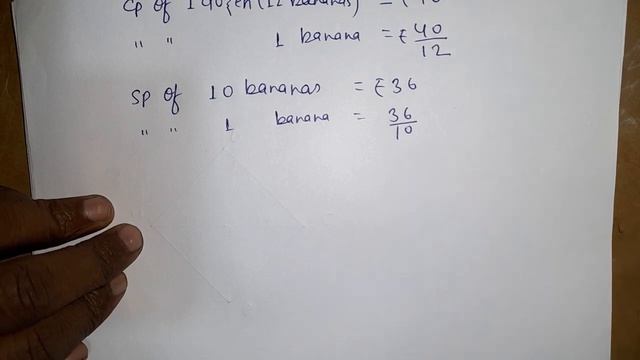 CP of 1 dozen (12 bananas) = ₹ 40
" " 1 banana = ₹ 40/12
SP of 10 bananas = ₹ 36
" " 1 banana = 36/10